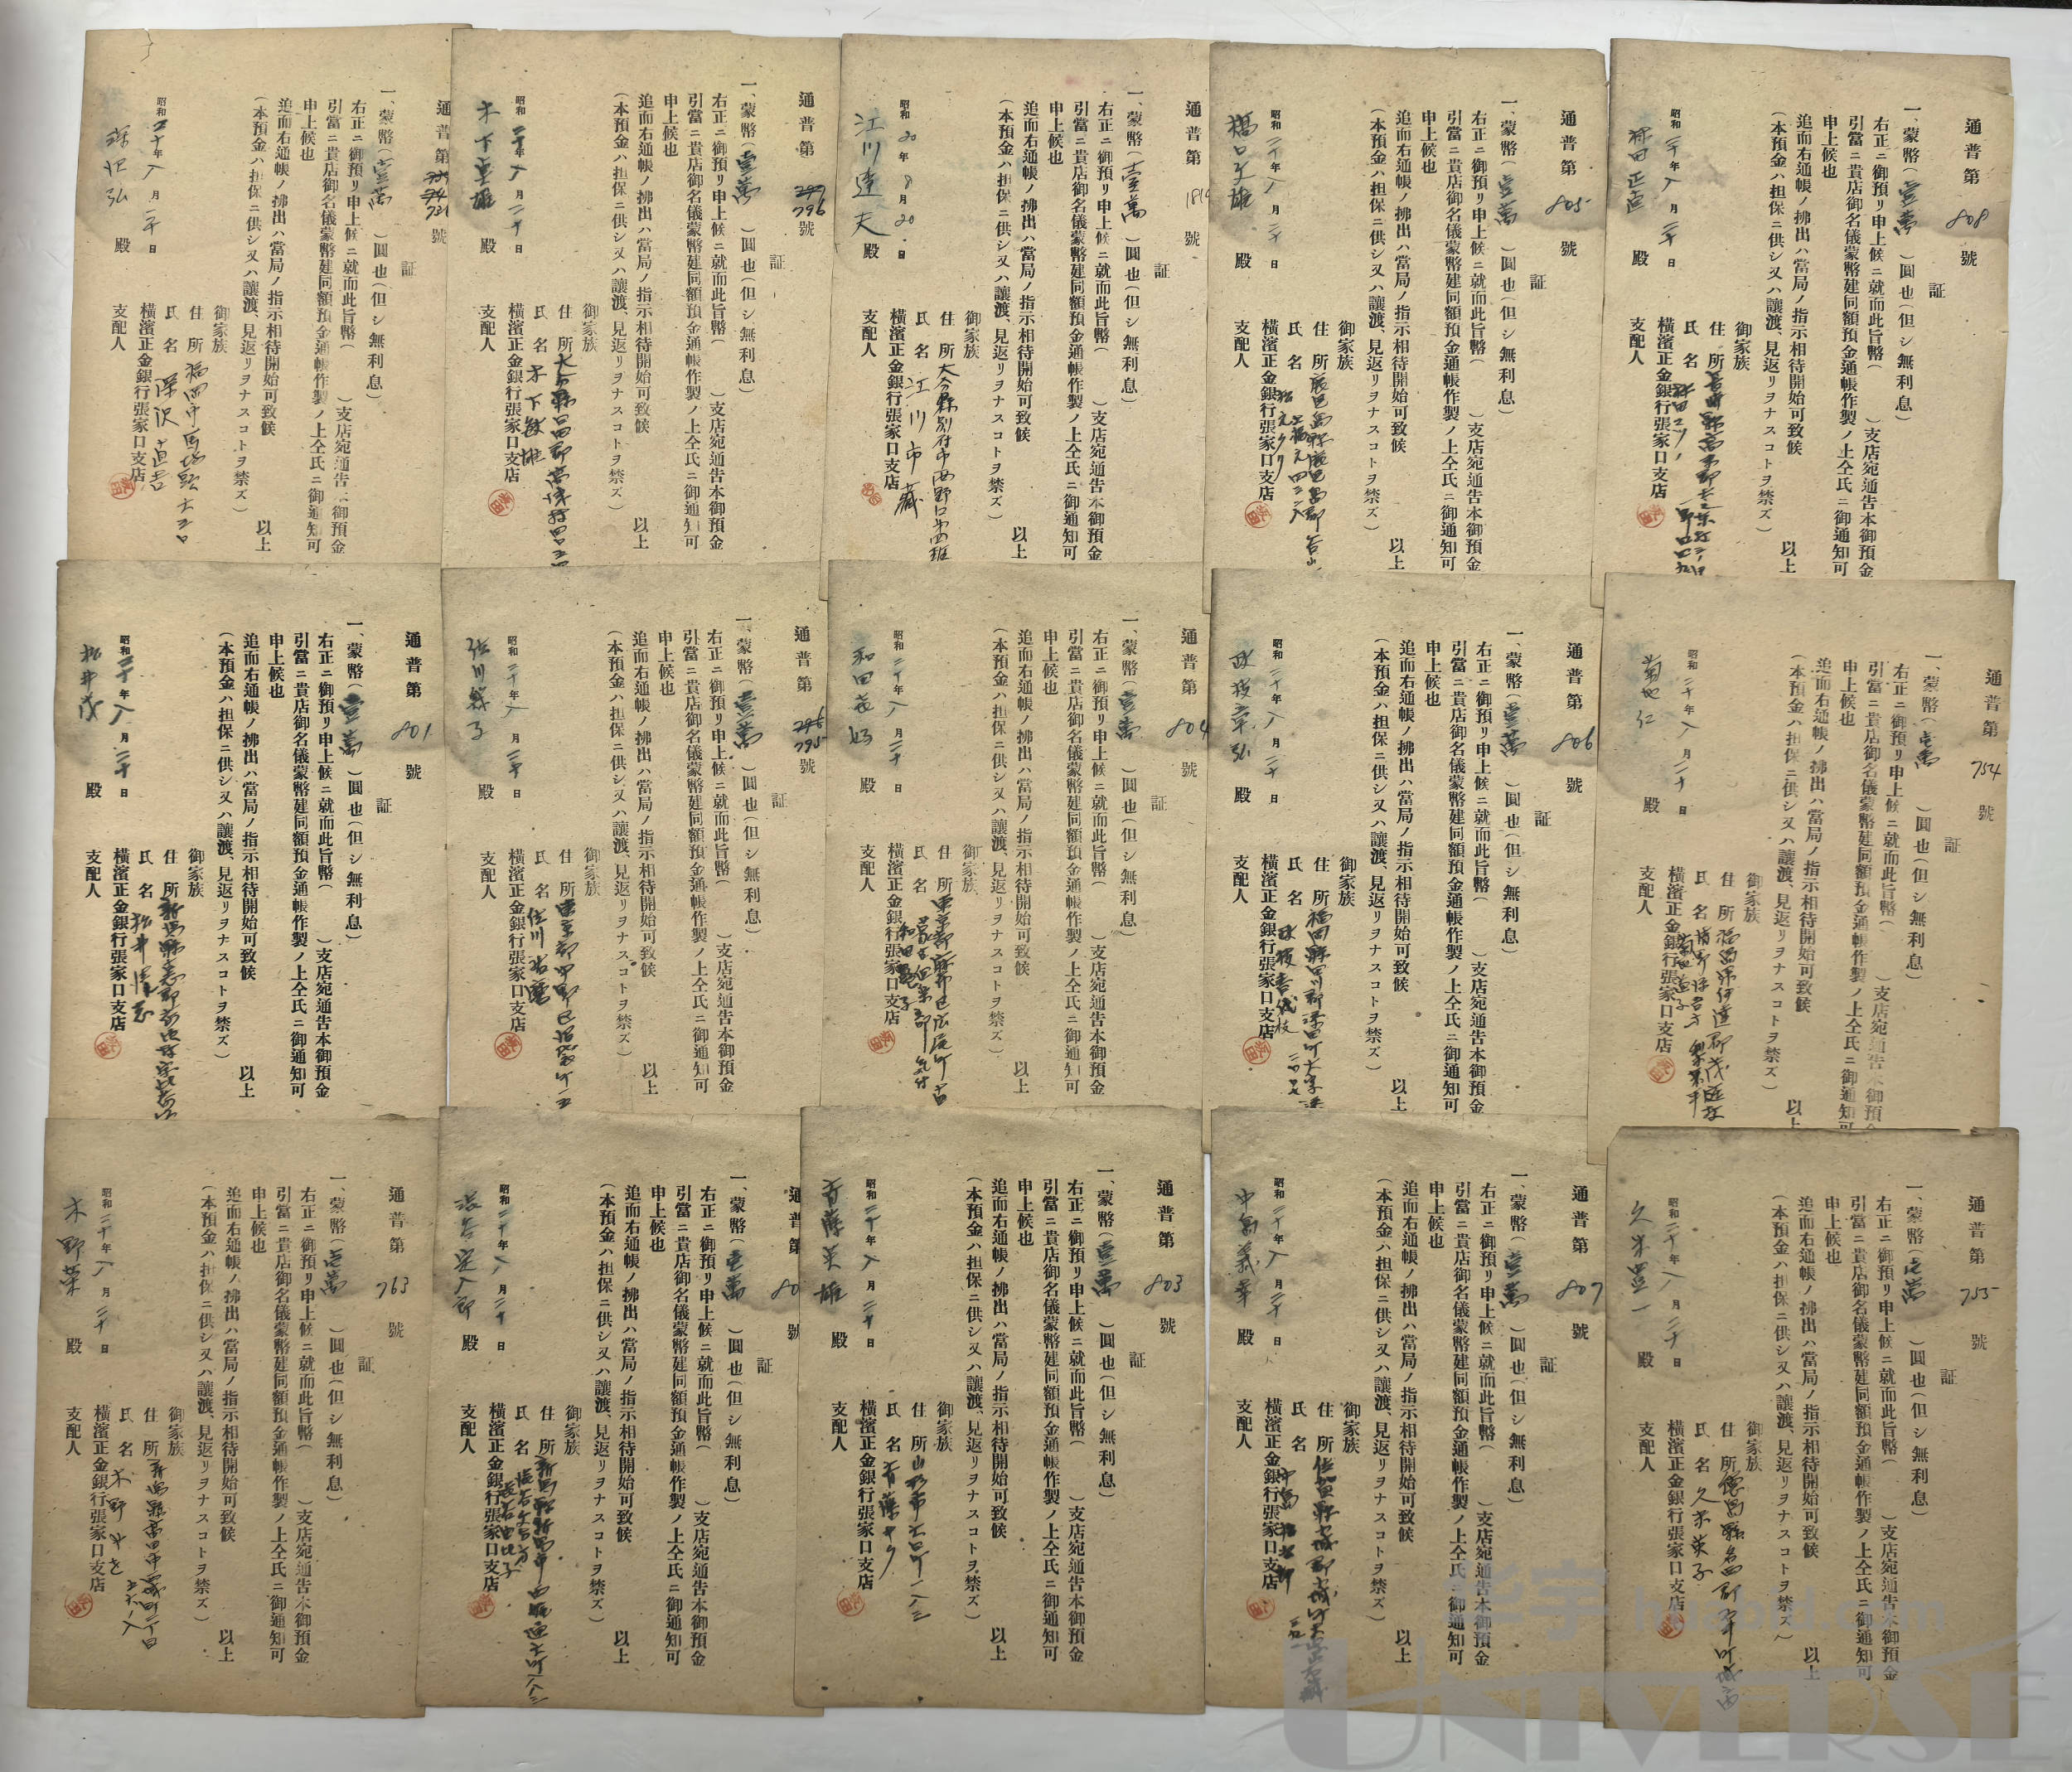 通普第 721 號
証
一、蒙幣(壹萬)圓也(但シ無利息)
右正ニ御預リ申上候ニ就而此旨幣( )支店宛通告本御預金
引當ニ貴店御名儀蒙幣建同額預金通帳作製ノ上仝氏ニ御通知可
申上候也
追而右通帳ノ拂出ハ當局ノ指示相待開始可致候
(本預金ハ担保ニ供シ又ハ讓渡、見返リヲナスコトヲ禁ズ)
以上
御家族
住所 福岡市
氏名 深沢直吉
横濱正金銀行張家口支店
支配人
昭和二十年八月二十日
深沢弘 殿
通普第 796 號
証
一、蒙幣(壹萬)圓也(但シ無利息)
右正ニ御預リ申上候ニ就而此旨幣( )支店宛通告本御預金
引當ニ貴店御名儀蒙幣建同額預金通帳作製ノ上仝氏ニ御通知可
申上候也
追而右通帳ノ拂出ハ當局ノ指示相待開始可致候
(本預金ハ担保ニ供シ又ハ讓渡、見返リヲナスコトヲ禁ズ)
以上
御家族
住所 大分縣日田郡
氏名 木下
横濱正金銀行張家口支店
支配人
昭和二十年八月二十日
木下重雄 殿
通普第 1814 號
証
一、蒙幣(壹萬)圓也(但シ無利息)
右正ニ御預リ申上候ニ就而此旨幣( )支店宛通告本御預金
引當ニ貴店御名儀蒙幣建同額預金通帳作製ノ上仝氏ニ御通知可
申上候也
追而右通帳ノ拂出ハ當局ノ指示相待開始可致候
(本預金ハ担保ニ供シ又ハ讓渡、見返リヲナスコトヲ禁ズ)
以上
御家族
住所 大分縣別府市西野口
氏名 江川市藏
横濱正金銀行張家口支店
支配人
昭和20年8月20日
江川達夫 殿
通普第 805 號
証
一、蒙幣(壹萬)圓也(但シ無利息)
右正ニ御預リ申上候ニ就而此旨幣( )支店宛通告本御預金
引當ニ貴店御名儀蒙幣建同額預金通帳作製ノ上仝氏ニ御通知可
申上候也
追而右通帳ノ拂出ハ當局ノ指示相待開始可致候
(本預金ハ担保ニ供シ又ハ讓渡、見返リヲナスコトヲ禁ズ)
以上
御家族
住所
氏名
横濱正金銀行張家口支店
支配人
昭和二十年八月二十日
橋口文雄 殿
通普第 808 號
証
一、蒙幣(壹萬)圓也(但シ無利息)
右正ニ御預リ申上候ニ就而此旨幣( )支店宛通告本御預金
引當ニ貴店御名儀蒙幣建同額預金通帳作製ノ上仝氏ニ御通知可
申上候也
追而右通帳ノ拂出ハ當局ノ指示相待開始可致候
(本預金ハ担保ニ供シ又ハ讓渡、見返リヲナスコトヲ禁ズ)
以上
御家族
住所
氏名
横濱正金銀行張家口支店
支配人
昭和二十年八月二十日
田正直 殿
通普第 801 號
証
一、蒙幣(壹萬)圓也(但シ無利息)
右正ニ御預リ申上候ニ就而此旨幣( )支店宛通告本御預金
引當ニ貴店御名儀蒙幣建同額預金通帳作製ノ上仝氏ニ御通知可
申上候也
追而右通帳ノ拂出ハ當局ノ指示相待開始可致候
(本預金ハ担保ニ供シ又ハ讓渡、見返リヲナスコトヲ禁ズ)
以上
御家族
住所
氏名 松井
横濱正金銀行張家口支店
支配人
昭和二十年八月二十日
松井茂 殿
通普第 795 號
証
一、蒙幣(壹萬)圓也(但シ無利息)
右正ニ御預リ申上候ニ就而此旨幣( )支店宛通告本御預金
引當ニ貴店御名儀蒙幣建同額預金通帳作製ノ上仝氏ニ御通知可
申上候也
追而右通帳ノ拂出ハ當局ノ指示相待開始可致候
(本預金ハ担保ニ供シ又ハ讓渡、見返リヲナスコトヲ禁ズ)
以上
御家族
住所 東京都
氏名 佐川
横濱正金銀行張家口支店
支配人
昭和二十年八月二十日
佐川 殿
通普第 804 號
証
一、蒙幣(壹萬)圓也(但シ無利息)
右正ニ御預リ申上候ニ就而此旨幣( )支店宛通告本御預金
引當ニ貴店御名儀蒙幣建同額預金通帳作製ノ上仝氏ニ御通知可
申上候也
追而右通帳ノ拂出ハ當局ノ指示相待開始可致候
(本預金ハ担保ニ供シ又ハ讓渡、見返リヲナスコトヲ禁ズ)
以上
御家族
住所 東京都麻布区広尾町
氏名 和田
横濱正金銀行張家口支店
支配人
昭和二十年八月二十日
和田 殿
通普第 806 號
証
一、蒙幣(壹萬)圓也(但シ無利息)
右正ニ御預リ申上候ニ就而此旨幣( )支店宛通告本御預金
引當ニ貴店御名儀蒙幣建同額預金通帳作製ノ上仝氏ニ御通知可
申上候也
追而右通帳ノ拂出ハ當局ノ指示相待開始可致候
(本預金ハ担保ニ供シ又ハ讓渡、見返リヲナスコトヲ禁ズ)
以上
御家族
住所 福岡縣田川郡添田町大字
氏名 政枝
横濱正金銀行張家口支店
支配人
昭和二十年八月二十日
政枝 殿
通普第 754 號
証
一、蒙幣(壱萬)圓也(但シ無利息)
右正ニ御預リ申上候ニ就而此旨幣( )支店宛通告本御預金
引當ニ貴店御名儀蒙幣建同額預金通帳作製ノ上仝氏ニ御通知可
申上候也
追而右通帳ノ拂出ハ當局ノ指示相待開始可致候
(本預金ハ担保ニ供シ又ハ讓渡、見返リヲナスコトヲ禁ズ)
以上
御家族
住所 福島縣伊達郡
氏名 菊地
横濱正金銀行張家口支店
支配人
昭和二十年八月二十日
菊地仁 殿
通普第 763 號
証
一、蒙幣(壱萬)圓也(但シ無利息)
右正ニ御預リ申上候ニ就而此旨幣( )支店宛通告本御預金
引當ニ貴店御名儀蒙幣建同額預金通帳作製ノ上仝氏ニ御通知可
申上候也
追而右通帳ノ拂出ハ當局ノ指示相待開始可致候
(本預金ハ担保ニ供シ又ハ讓渡、見返リヲナスコトヲ禁ズ)
以上
御家族
住所
氏名 木野
横濱正金銀行張家口支店
支配人
昭和二十年八月二十日
木野栄 殿
通普第 80 號
証
一、蒙幣(壱萬)圓也(但シ無利息)
右正ニ御預リ申上候ニ就而此旨幣( )支店宛通告本御預金
引當ニ貴店御名儀蒙幣建同額預金通帳作製ノ上仝氏ニ御通知可
申上候也
追而右通帳ノ拂出ハ當局ノ指示相待開始可致候
(本預金ハ担保ニ供シ又ハ讓渡、見返リヲナスコトヲ禁ズ)
以上
御家族
住所
氏名
横濱正金銀行張家口支店
支配人
昭和二十年八月二十日
殿
通普第 803 號
証
一、蒙幣(壹萬)圓也(但シ無利息)
右正ニ御預リ申上候ニ就而此旨幣( )支店宛通告本御預金
引當ニ貴店御名儀蒙幣建同額預金通帳作製ノ上仝氏ニ御通知可
申上候也
追而右通帳ノ拂出ハ當局ノ指示相待開始可致候
(本預金ハ担保ニ供シ又ハ讓渡、見返リヲナスコトヲ禁ズ)
以上
御家族
住所 山形市
氏名
横濱正金銀行張家口支店
支配人
昭和二十年八月二十日
英雄 殿
通普第 807 號
証
一、蒙幣(壹萬)圓也(但シ無利息)
右正ニ御預リ申上候ニ就而此旨幣( )支店宛通告本御預金
引當ニ貴店御名儀蒙幣建同額預金通帳作製ノ上仝氏ニ御通知可
申上候也
追而右通帳ノ拂出ハ當局ノ指示相待開始可致候
(本預金ハ担保ニ供シ又ハ讓渡、見返リヲナスコトヲ禁ズ)
以上
御家族
住所 佐賀縣小城郡小城町大字
氏名 中島
横濱正金銀行張家口支店
支配人
昭和二十年八月二十日
中島義幸 殿
通普第 755 號
証
一、蒙幣(壱萬)圓也(但シ無利息)
右正ニ御預リ申上候ニ就而此旨幣( )支店宛通告本御預金
引當ニ貴店御名儀蒙幣建同額預金通帳作製ノ上仝氏ニ御通知可
申上候也
追而右通帳ノ拂出ハ當局ノ指示相待開始可致候
(本預金ハ担保ニ供シ又ハ讓渡、見返リヲナスコトヲ禁ズ)
以上
御家族
住所 徳島縣名西郡
氏名 久米英子
横濱正金銀行張家口支店
支配人
昭和二十年八月二十日
久米豊一 殿
华宇
UNIVERSE